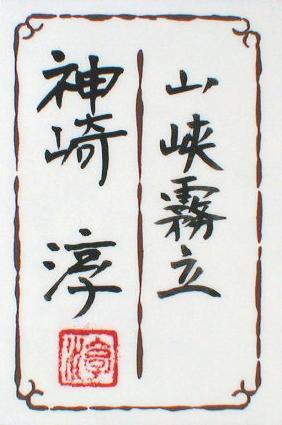 山峡霧立
神崎淳
淳